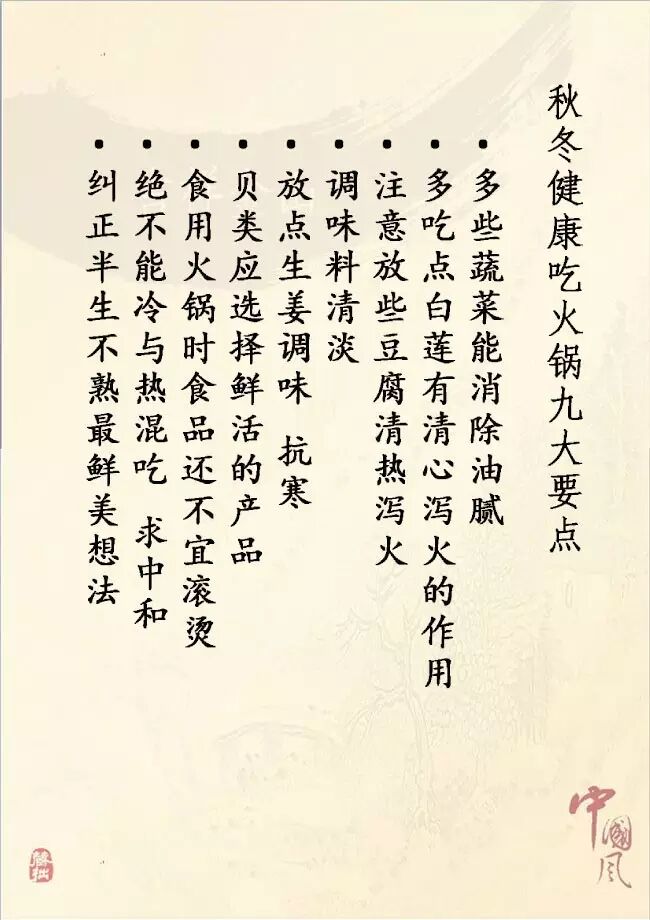 秋冬健康吃火锅九大要点
• 多些蔬菜能消除油腻
• 多吃点白莲有清心泻火的作用
• 注意放些豆腐清热泻火
• 调味料清淡
• 放点生姜调味 抗寒
• 贝类应选择鲜活的产品
• 食用火锅时食品还不宜滚烫
• 绝不能冷与热混吃 求中和
• 纠正半生不熟最鲜美想法
中國风